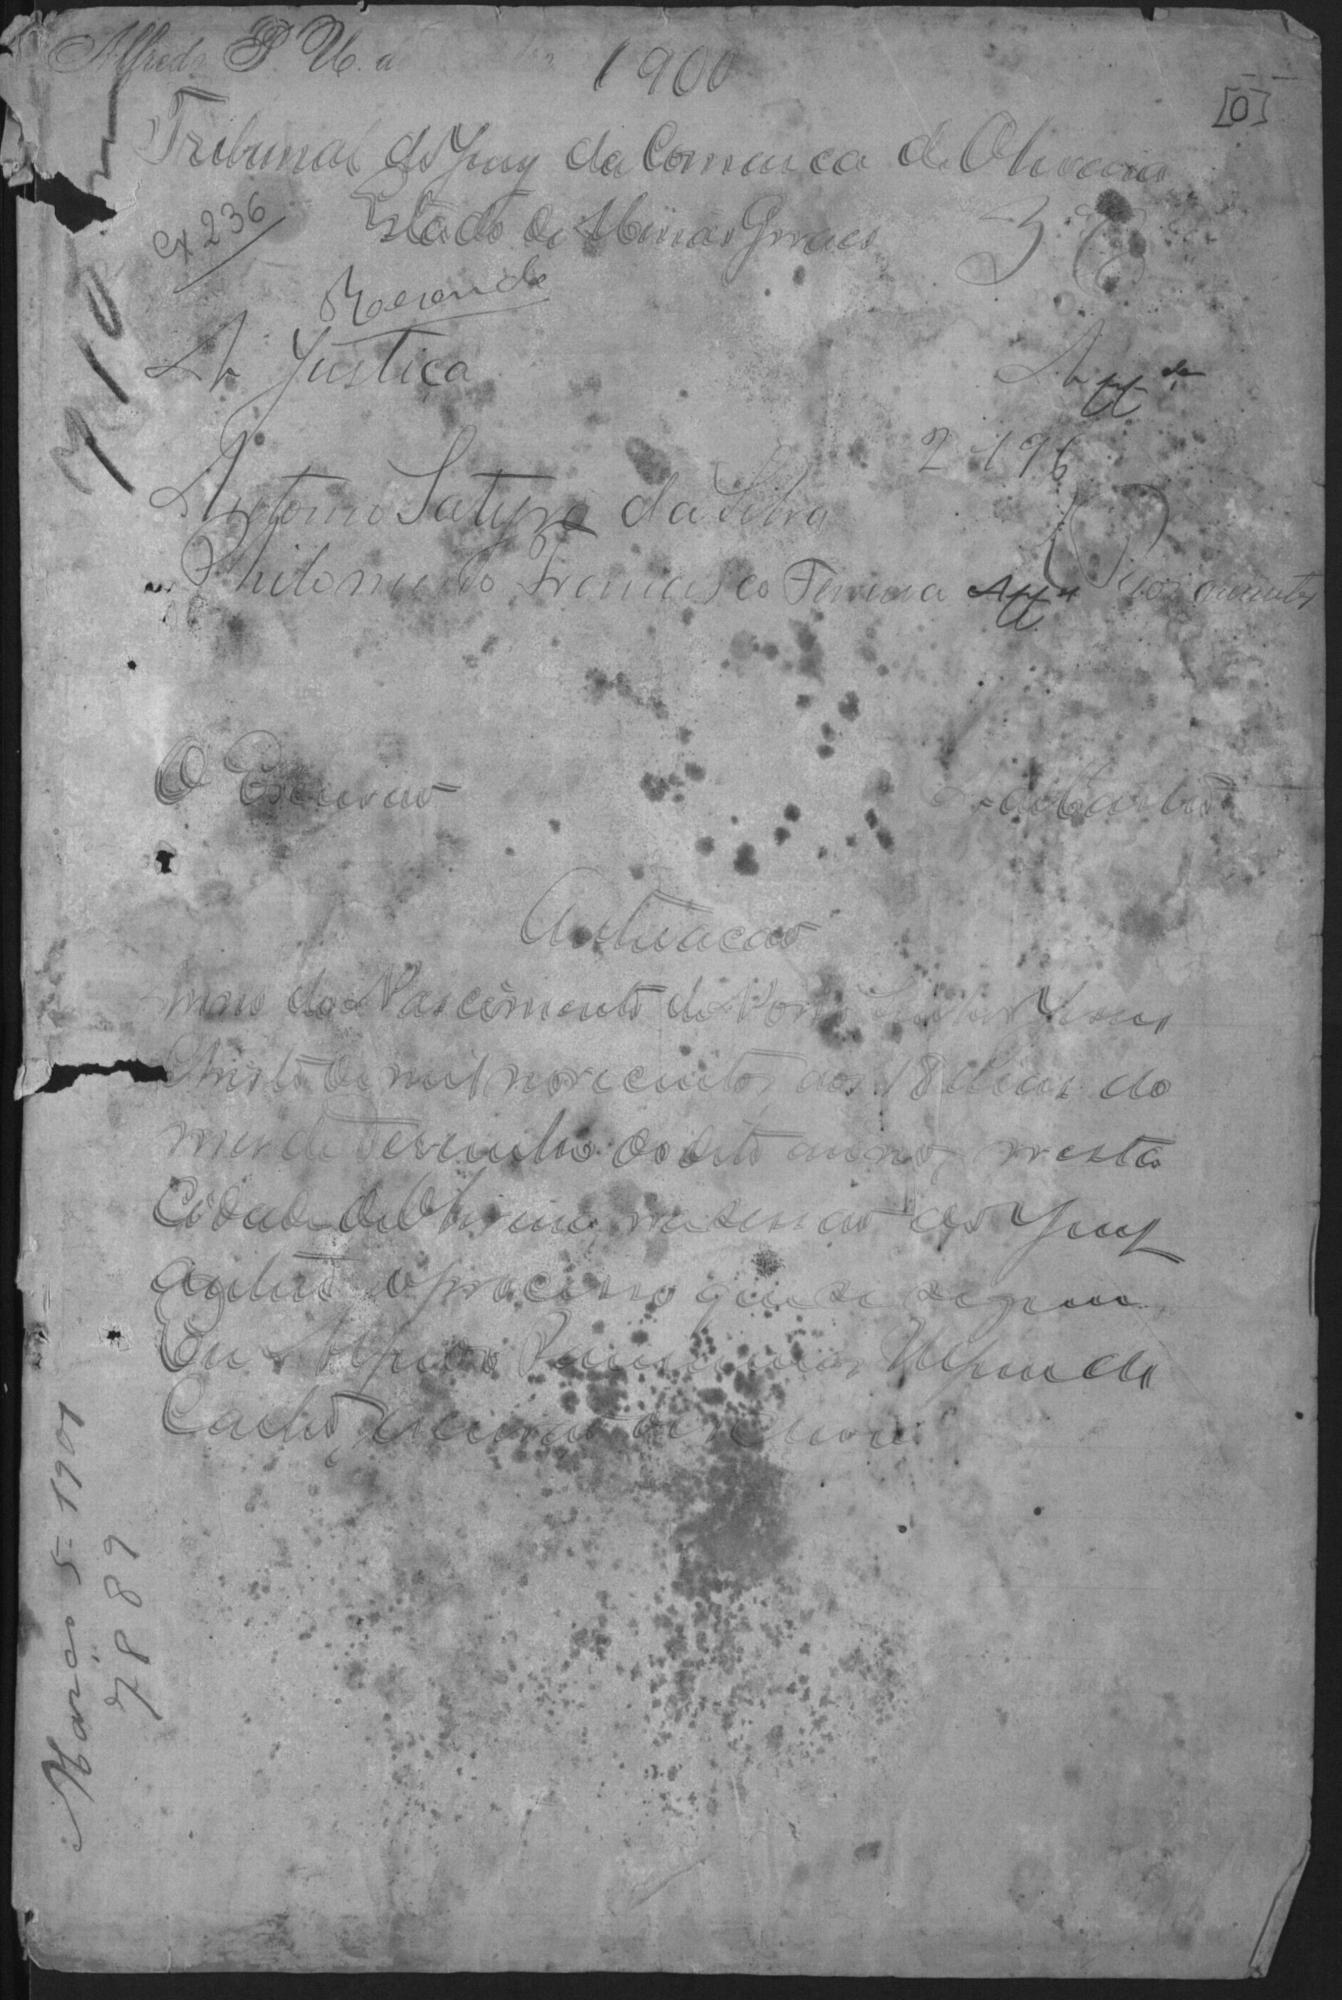 Alfredo P. U. a
1900
[0]
Tribunal do Jury da Comarca de Oliveira
Cx 236
Estado de Minas Geraes
Rezende
710
A Justica
App.de
2196
Antonio Satyro da Silva
Philomeno Francisco Ferreira App.
O Escrivão
Autuacão
nno do Nascimento de Nosso Senhor Jesus
Christo de mil novecentos aos 18 dias do
mez de dito anno nesta
Cidade de Oliveira na sessão do Jury
autuo o processo que se segue
Eu Alfredo
Castro, escrivão
Março 5-1901
7889